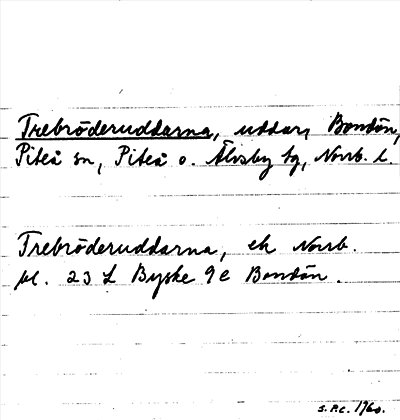 Trebröderuddarna, uddar, Bondön,
Piteå sn, Piteå o. Älvsby tg, Norrb. l.
Trebröderuddarna, ek Norrb.
bl. 23 L Byske 9e Bondön.
S.P.C. 1960.